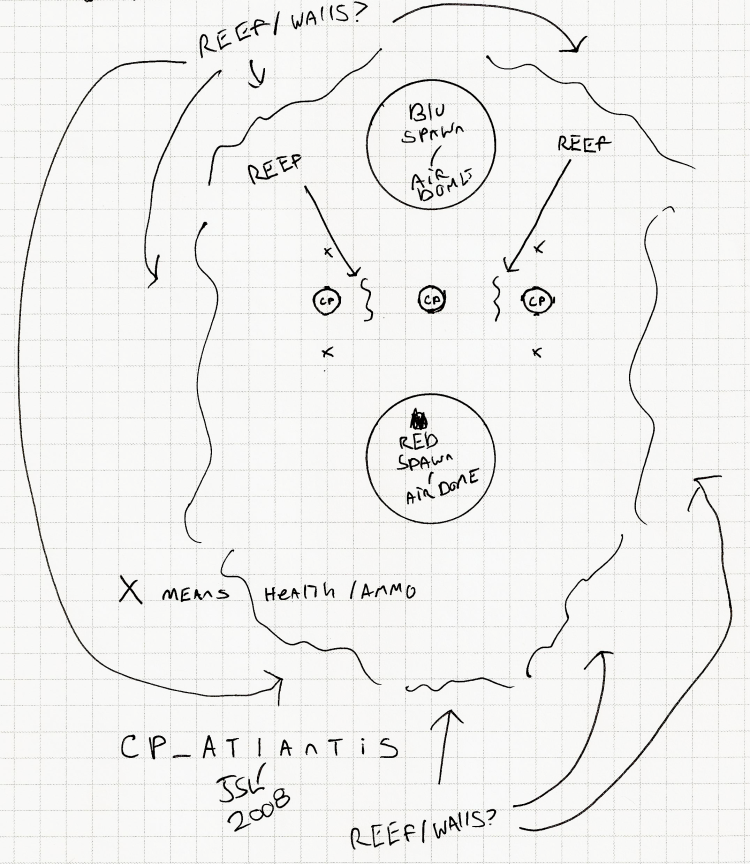 REEF/WALLS?
BLU
SPAWN
/
AIR
DOME
REEF
REEF
X
X
CP
CP
CP
X
X
RED
SPAWN
/
AIR DOME
X MEANS HEALTH/AMMO
CP_ATLANTIS
2008
REEF/WALLS?